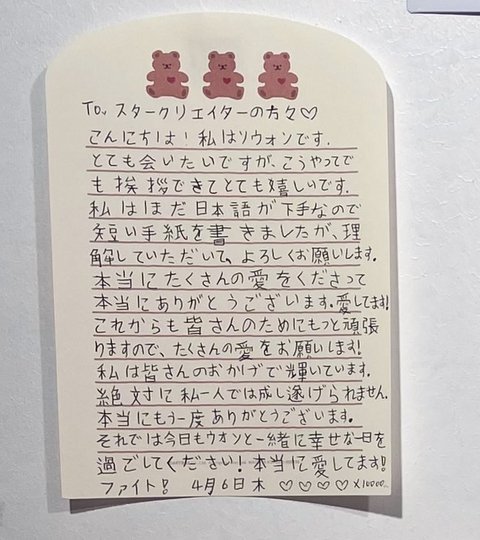 To. スタークリエイターの方々♡
こんにちは！私はソウォンです。
とても会いたいですが、こうやってで
も挨拶できてとても嬉しいです。
私はまだ日本語が下手なので
短い手紙を書きましたが、理
解していただいて、よろしくお願いします。
本当にたくさんの愛をくださって
本当にありがとうございます。愛してます!
これからも皆さんのためにもっと頑張
りますので、たくさんの愛をお願いします!
私は皆さんのおかげで輝いています。
絶対に私一人では成し遂げられません。
本当にもう一度ありがとうございます。
それでは今日もウオンと一緒に幸せな一日を
過ごしてください！本当に愛してます!
ファイト！ 4月6日木 ♡♡♡♡×10000..